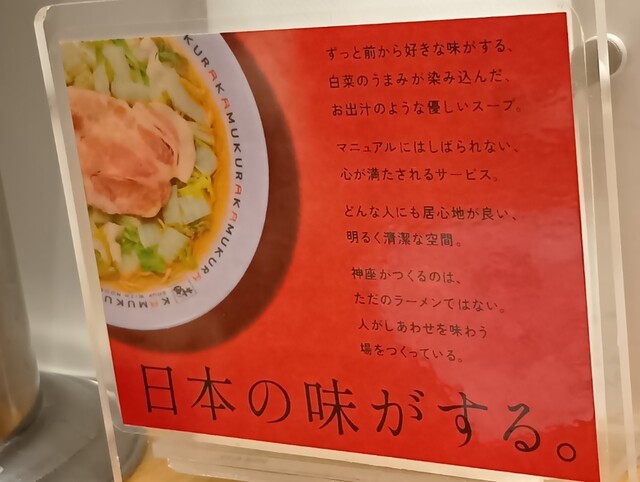 ずっと前から好きな味がする、
白菜のうまみが染み込んだ、
お出汁のような優しいスープ。
マニュアルにはしばられない、
心が満たされるサービス。
どんな人にも居心地が良い、
明るく清潔な空間。
神座がつくるのは、
ただのラーメンではない。
人がしあわせを味わう
場をつくっている。
日本の味がする。
KURAKAMUKURAKAMUKURAKAMUKURA
KAMUKU